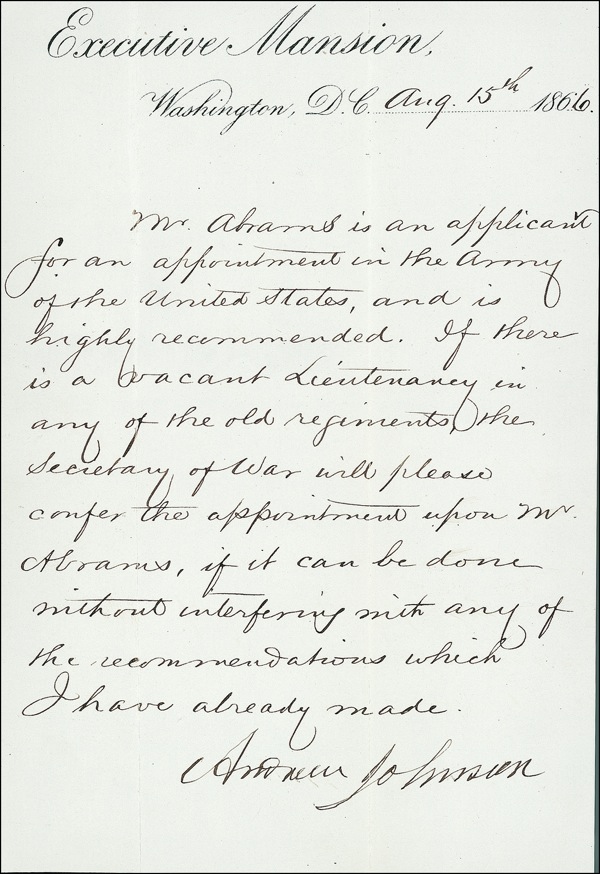 Executive Mansion,
Washington, D.C. Aug. 15th 1866.
Mr. Abrams is an applicant
for an appointment in the Army
of the United States, and is
highly recommended. If there
is a vacant Lieutenancy in
any of the old regiments, the
Secretary of War will please
confer the appointment upon Mr.
Abrams, if it can be done
without interfering with any of
the recommendations which
I have already made.
Andrew Johnson